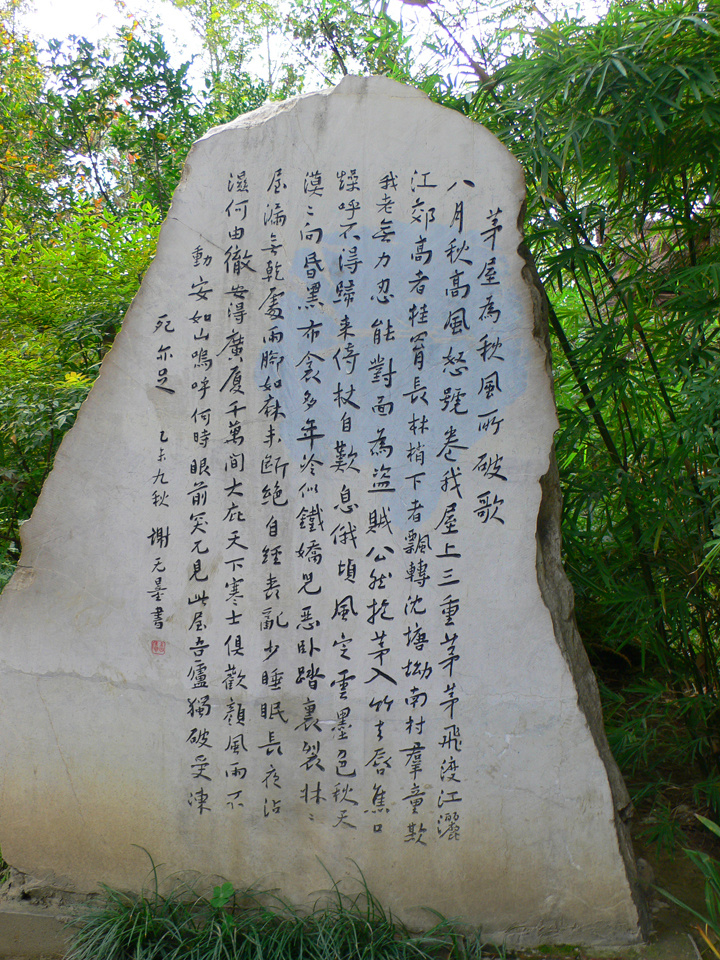 茅屋為秋風所破歌
八月秋高風怒號卷我屋上三重茅茅飛渡江灑
江郊高者挂罥長林梢下者飄轉沈塘坳南村羣童欺
我老無力忍能對面為盜賊公然抱茅入竹去唇焦口
燥呼不得歸来倚杖自歎息俄頃風定雲墨色秋天
漠〻向昏黑布衾多年冷似鐵嬌兒惡卧踏裏裂牀〻
屋漏無乾處雨腳如麻未斷絕自經喪乱少睡眠長夜沾
濕何由徹安得廣厦千萬間大庇天下寒士俱歡顔風雨不
動安如山嗚呼何時眼前突兀見此屋吾廬獨破受凍
死亦足 乙未九秋 謝无量書